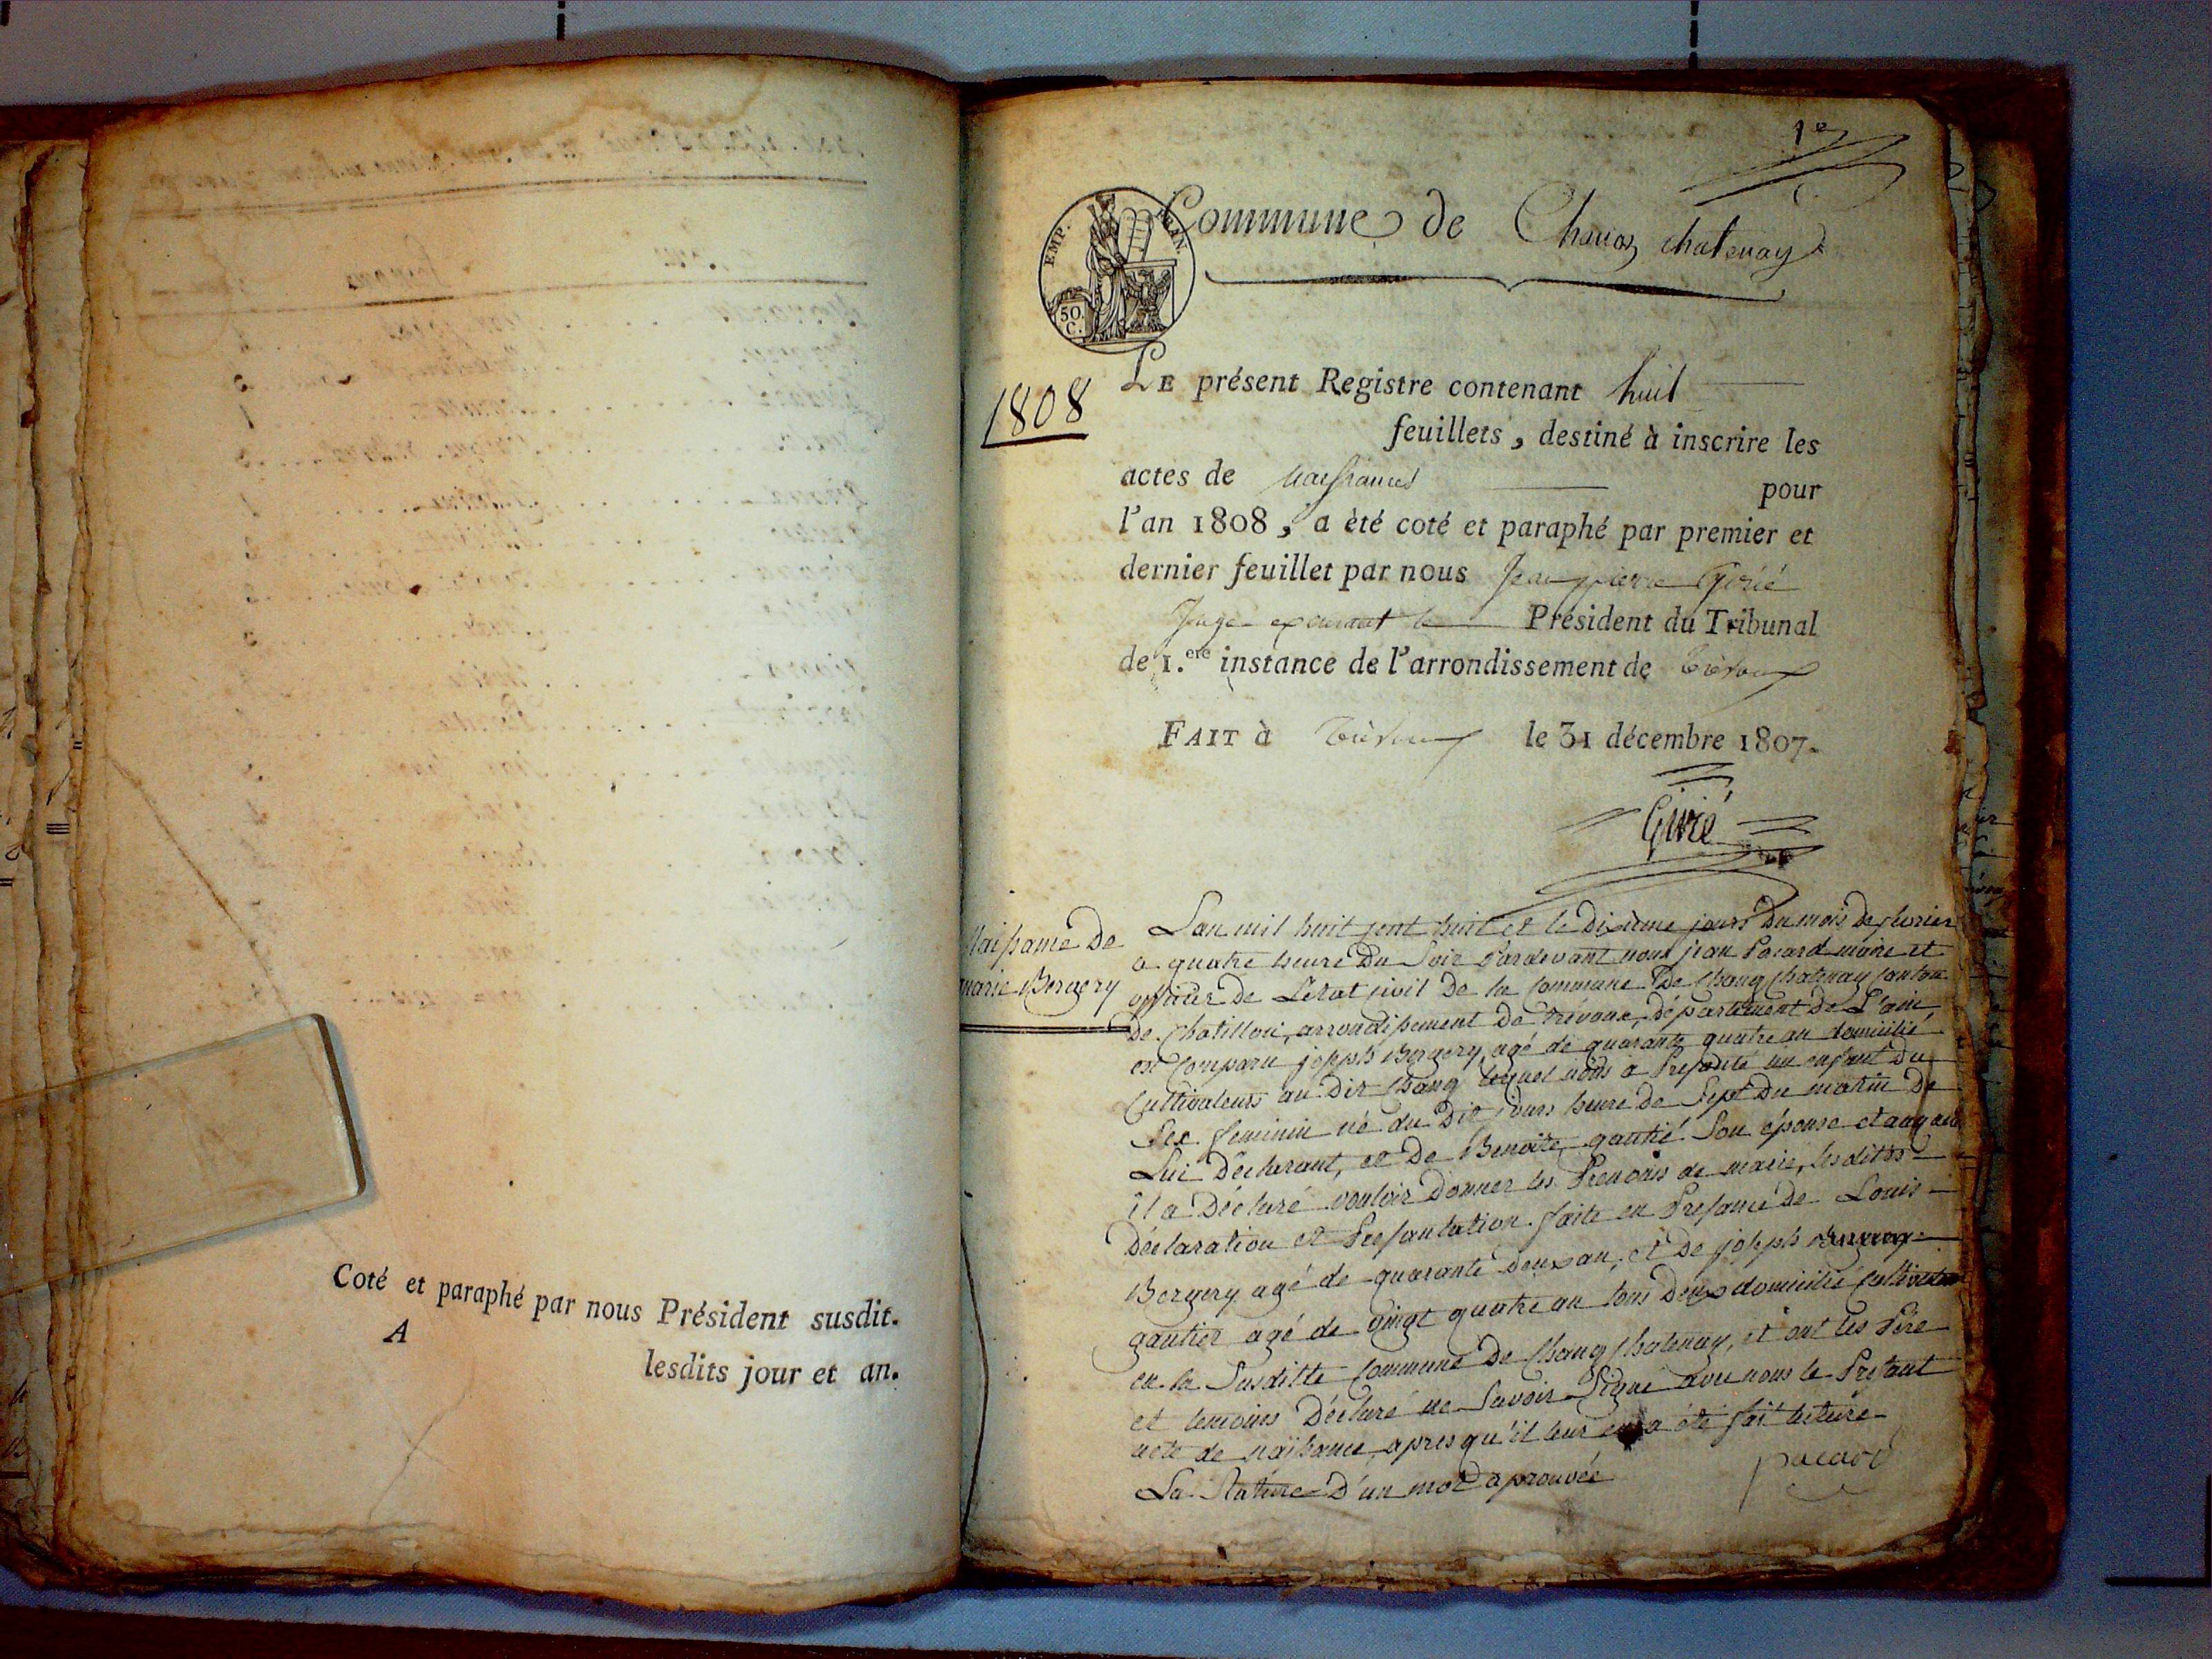 Coté et paraphé par nous Président susdit.
A
lesdits jour et an.
1er
EMP. FRAN.
50.
C.
Commune de Chanoz chatenay
1808
LE présent Registre contenant huit
feuillets, destiné à inscrire les
actes de Naissances pour
l'an 1808, a èté coté et paraphé par premier et
dernier feuillet par nous Jean pierre Girié
Juge exerçant le Président du Tribunal
de 1.ere instance de l'arrondissement de Trévoux
FAIT à Trévoux le 31 décembre 1807.
Girié
Naissance de
marie Bergery
Lan mil huit sent huit et le dixieme jours du mois de fevrier
a quatre heure du Soir Pardevant nous jean Pacard maire et
officier de Letat sivil de la Commune De Chanoz Chatenay Canton
de Chatillon, arrondissement de trevoux, département de L'ain,
est Comparu joseph Bergery, agé de quarante quatre an domicilié
Cultivateurs au dit Chanoz lequel nous a Presanté un enfant du
Sex feminin né du dit jours heure de Sept du matin de
Lui Déclarant, et de Benoite gautié Son épouse et auquel
il a Déclaré vouloir donner les Prenoms de marie, lesdittes
Déclaration et Presantation faite en Presance de Louis
Bergery agé de quarante deux an, et de joseph
gautier agé de vingt quatre an tous deux domicilié Cultivateur
en la Susditte Commune de Chanoz Chatenay, et ont les Père
et temoins Déclaré ne Savoir Signé avec nous le Presant
acte de naissance apres qu'il leur en a été fait lecture
La Rature D'un mot aprouvée
pacard